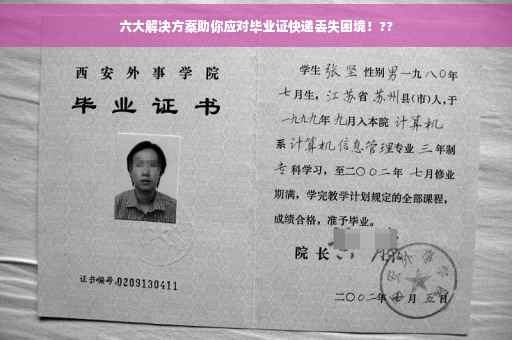 六大解决方案助你应对毕业证快递丢失困境！??
西安外事学院
毕业证书
证书编号:0209130411
学生 张坚 性别 男 一九八〇年
七月生，江苏省 苏州 县(市)人，于
一九九九年 九月入本院 计算机
系 计算机信息管理专业 三 年制
专科学习，至二〇〇二年 七月修业
期满，学完教学计划规定的全部课程，
成绩合格，准予毕业。
院长
二〇〇二年 月 五日